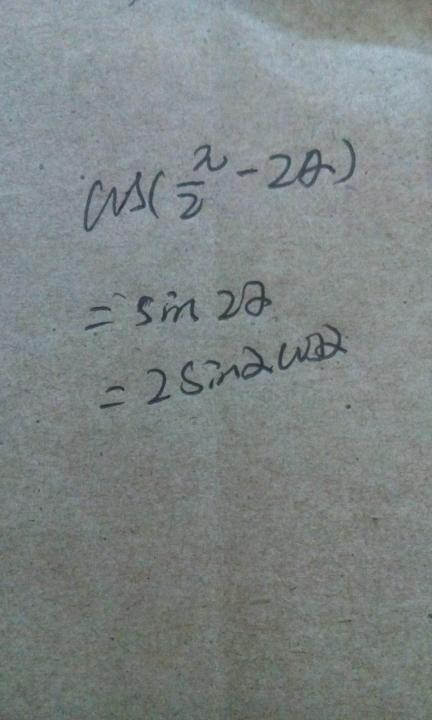 cos(π/2 - 2α)
= sin 2α
= 2 sinα cosα